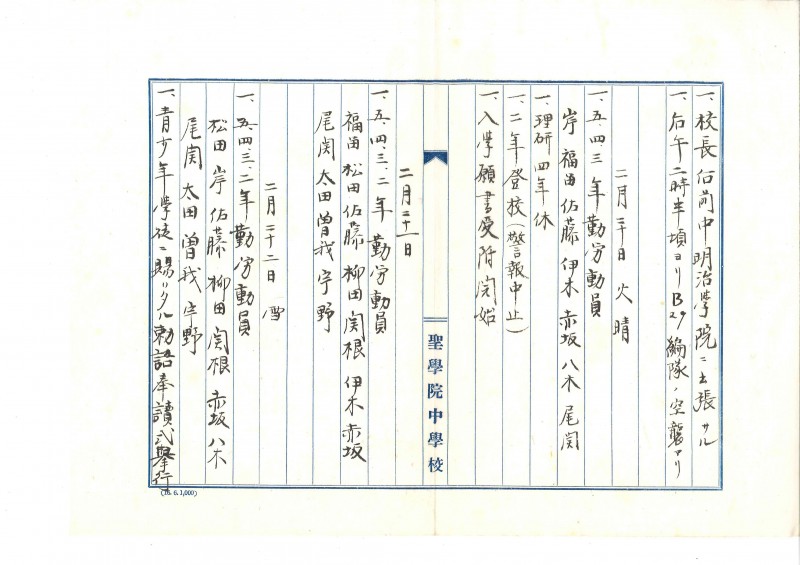 一、校長 午前中明治學院ニ出張サル
一、后午二時半頃ヨリB29編隊ノ空襲アリ
二月二十日 火 晴
一、五、四、三、年勤労動員
岸 福田 佐藤 伊木 赤坂 八木 尾関
一、理研四年休
一、二年登校(警報中止)
一、入學願書受附開始
聖學院中學校
二月二十一日
一、五、四、三、二年 勤労動員
福田 松田 佐藤 柳田 関根 伊木 赤坂
尾関 太田 曽我 宇野
二月二十二日 雪
一、五、四、三、二年勤労動員
松田 岸 佐藤 柳田 関根 赤坂 八木
尾関 太田 曽我 宇野
一、青少年學徒ニ賜リタル勅語奉讀式挙行
(18. 6. 1,000)